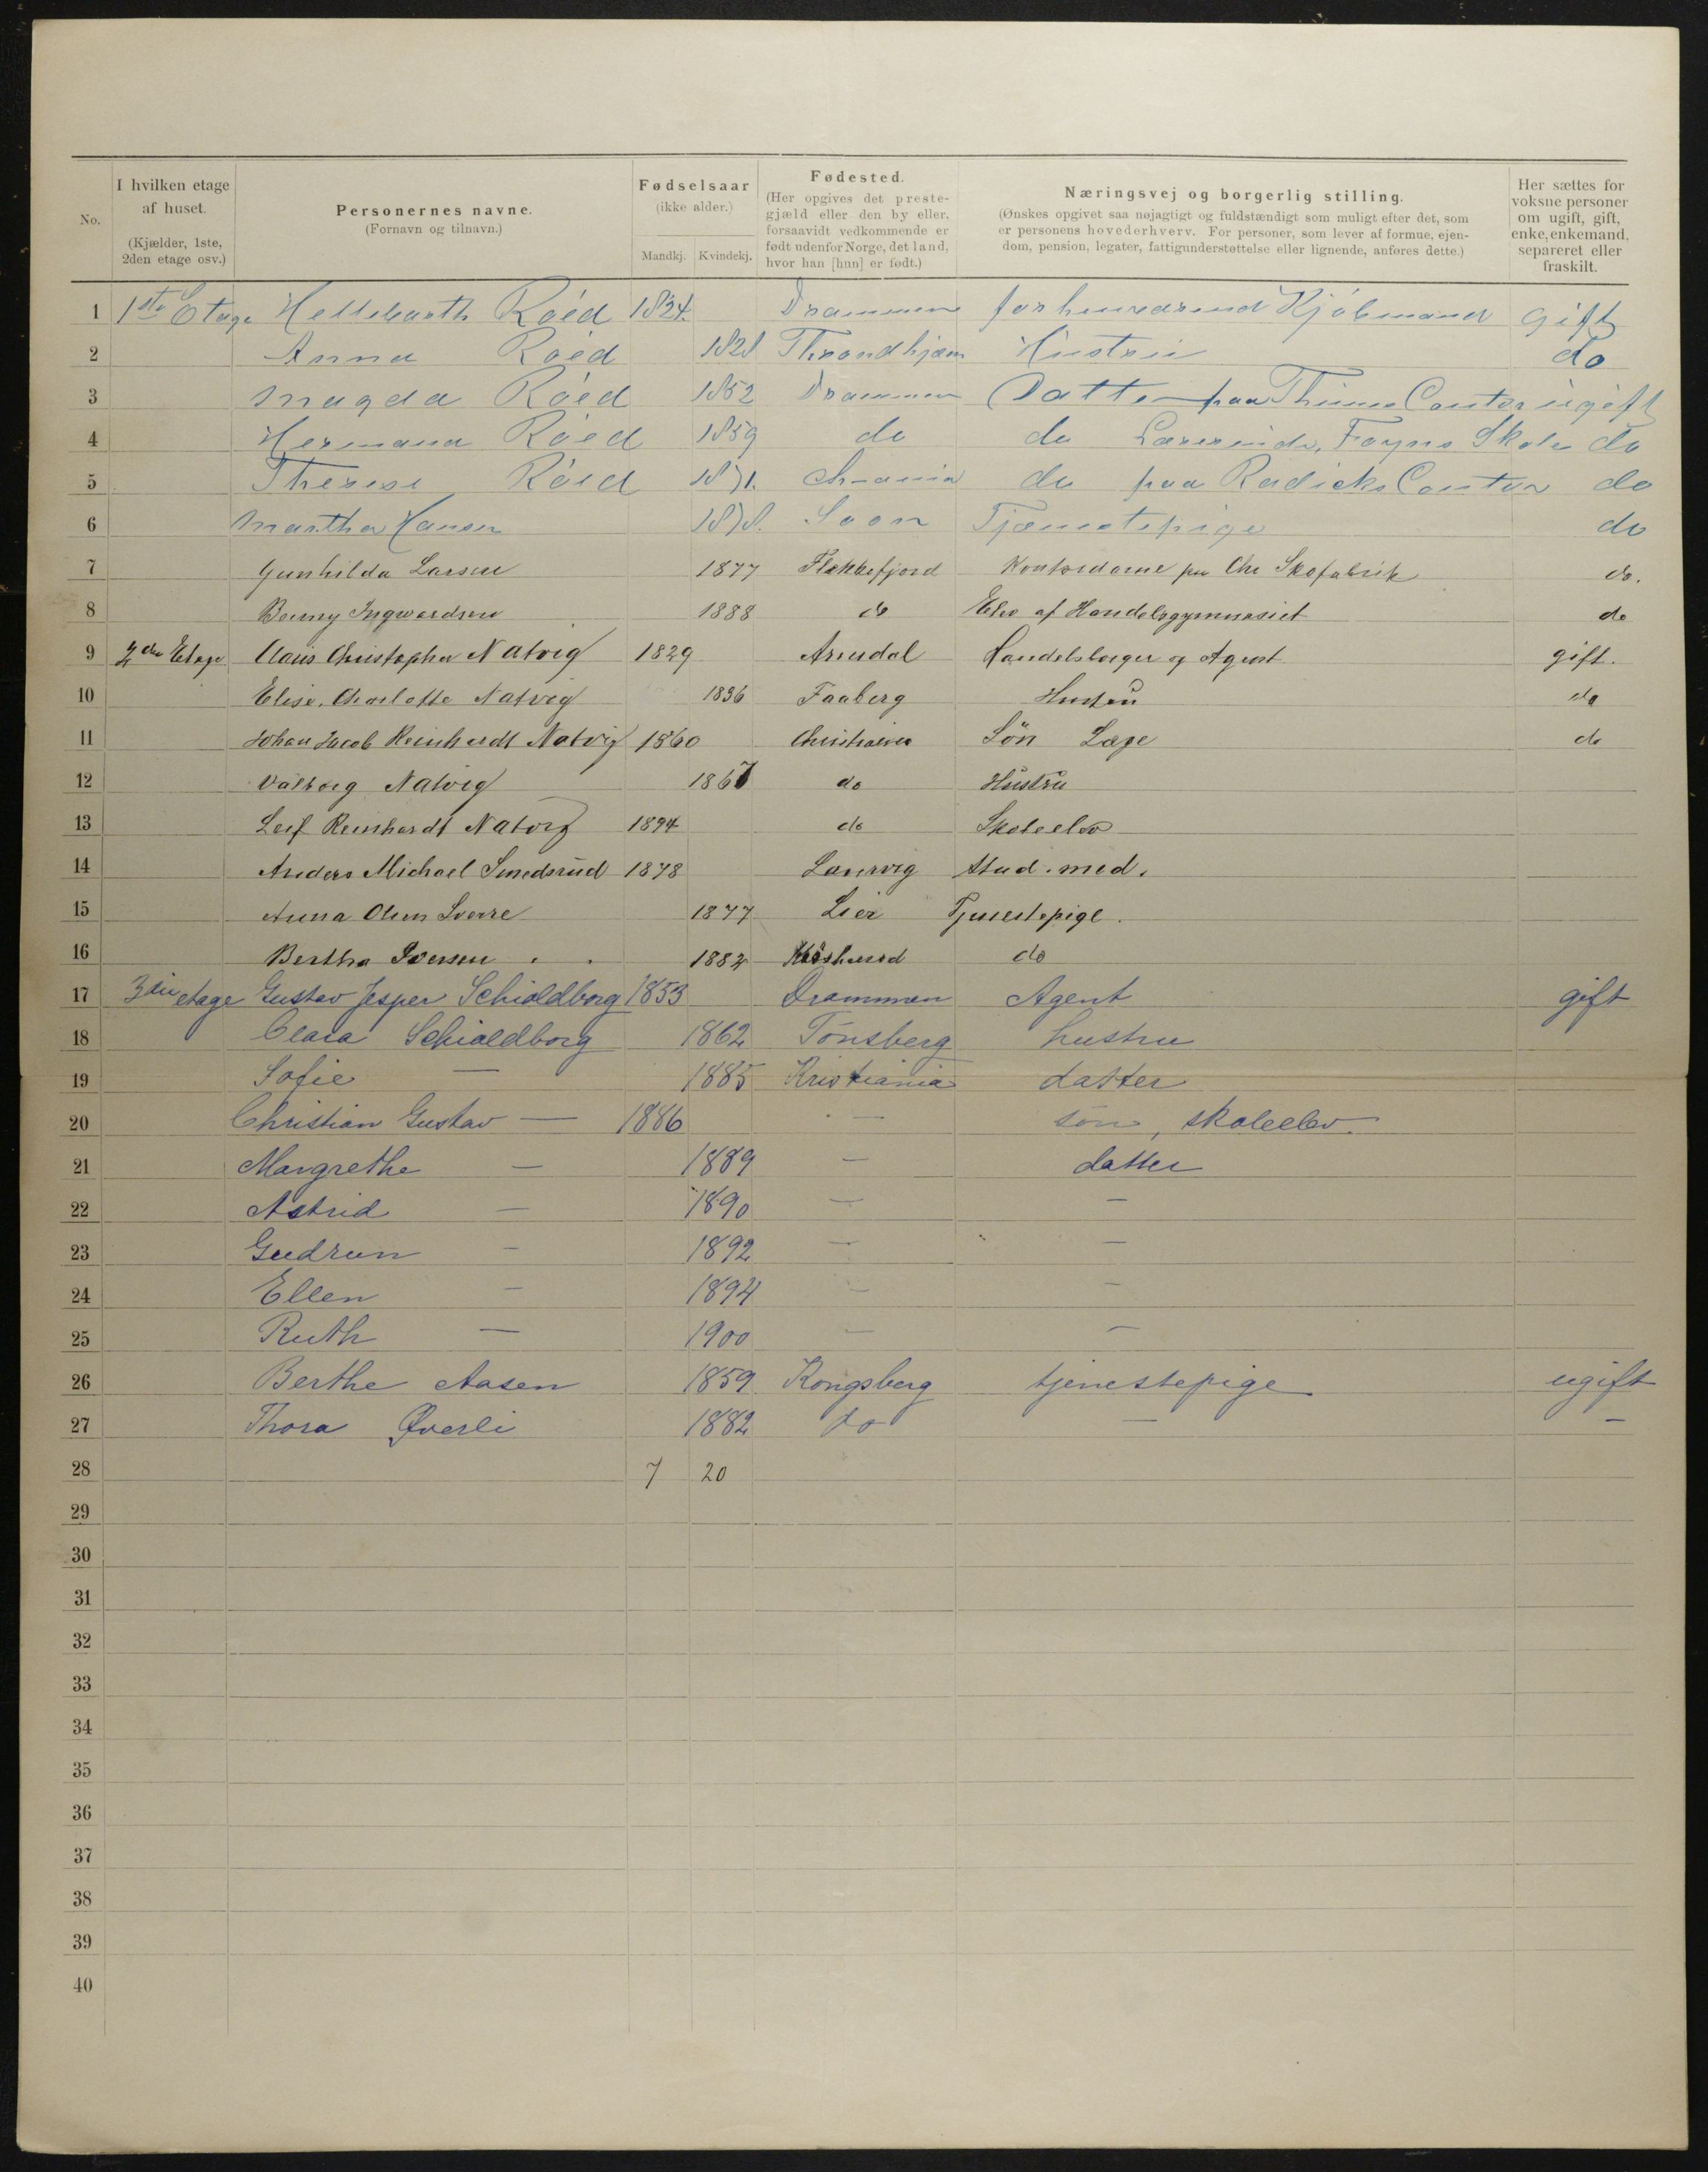 No.	I hvilken etage af huset. (Kjælder, 1ste, 2den etage osv.)	Personernes navne. (Fornavn og tilnavn.)	Fødselsaar (ikke alder.) Mandkj. Kvindekj.	Fødested. (Her opgives det prestegjæld eller den by eller, forsaavidt vedkommende er født udenfor Norge, det land, hvor han [hun] er født.)	Næringsvej og borgerlig stilling. (Ønskes opgivet saa nøjagtigt og fuldstændigt som muligt efter det, som er personens hovederhverv. For personer, som lever af formue, ejendom, pension, legater, fattigunderstøttelse eller lignende, anføres dette.)	Her sættes for voksne personer om ugift, gift, enke, enkemand, separeret eller fraskilt.
1 1ste Etage Röed 1824. Drammen forhenværend Kjöbmand gift
2 Anna Röed 1828 Throndhjem Hustru do
3 Magda Röed 1852 Drammen Datter paa Contor ugift
4 Hermana Röed 1859 do do Lærerinde, Foyns Skole do
5 Therese Röed 1871. Ch-ania do paa Contor do
6 Martha Hansen 1878. Soon Tjænestepige do
7 Gunhilda Larsen 1877 Flekkefjord Kontordame paa Chr Skofabrik do.
8 Ingwardsen 1888 do Elev af Handelsgymnasiet do
9 2den Etage Claus Christopher Natvig 1829 Arendal Handelsborger og Agent gift.
10 Elise Charlotte Natvig 1836 Faaberg Hustru do
11 Johan Jacob Reinhardt Natvig 1860 Christiania Sön Læge do
12 Valborg Natvig 1867 do Hustru
13 Leif Reinhardt Natvig 1894 do Skoleelev
14 Anders Michael Smedsrud 1878 Laurvig stud. med.
15 Anna Olsen Sverre 1877 Lier Tjenestepige.
16 Bertha Iversen 1882 do
17 3die etage Gustav Jesper Schioldborg 1853 Drammen Agent gift
18 Clara Schioldborg 1862 Tönsberg hustru
19 Sofie — 1885 Kristiania datter
20 Christian Gustav — 1886 — sön, skoleelev.
21 Margrethe — 1889 — datter
22 Astrid — 1890 — —
23 Gudrun — 1892 — —
24 Ellen — 1894 — —
25 Ruth — 1900 — —
26 Berthe Aasen 1859 Kongsberg tjenestepige ugift
27 Thora Øverli 1882 do — —
28 7 20
29
30
31
32
33
34
35
36
37
38
39
40